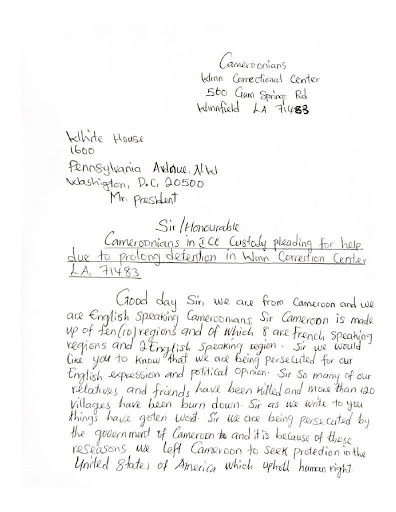 Cameroonians
Winn Correctional Center
560 Gum Spring Rd
Winnfield LA 71483
White House
1600
Pennsylvania Avenue, NW
Washington, D.C. 20500
Mr. President
Sir/Honourable
Cameroonians in ICE Custody pleading for help
due to prolong detention in Winn Correction Center
LA, 71483
Good day Sir, we are from Cameroon and we
are English speaking Cameroonians Sir Cameroon is made
up of ten (10) regions and of which 8 are French speaking
regions and 2 English speaking region. Sir we would
like you to know that we are being persecuted for our
English expression and political opinion. Sir So many of our
relatives and friends have been killed and more than 120
villages have been burn down. Sir as we write to you
things have goten worst. Sir we are being persecuted by
the government of Cameroon to and it is because of these
reseasons we left Cameroon to seek protection in the
United States of America which uphold human right.